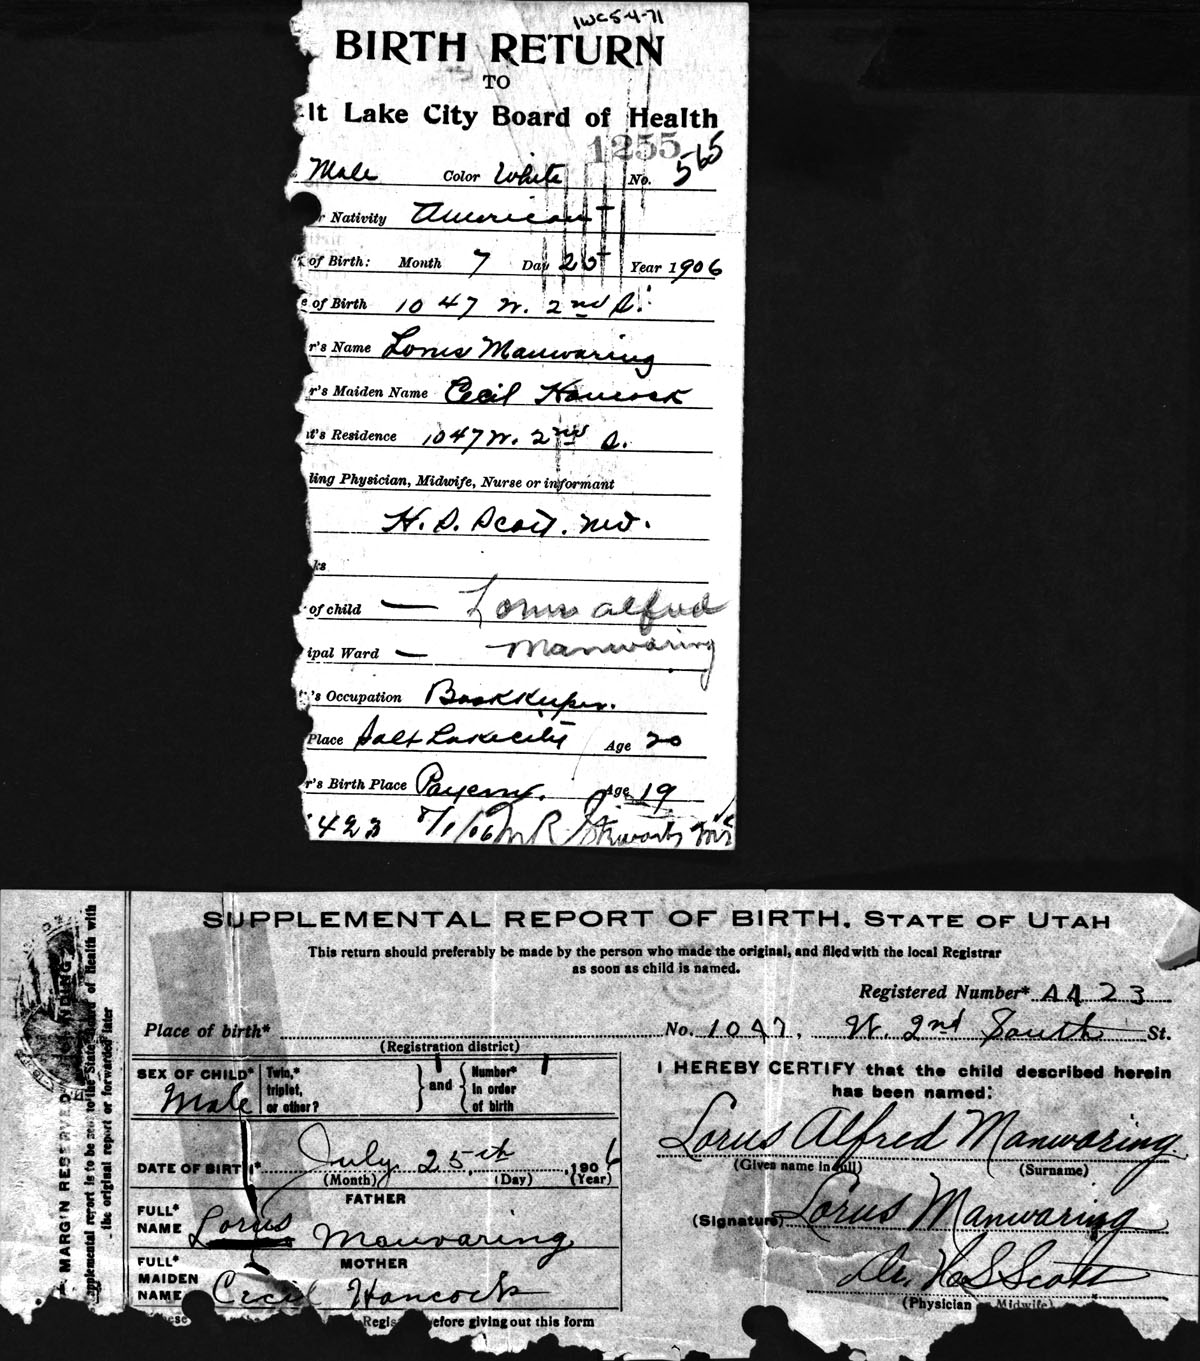 IWC 5-4-71
BIRTH RETURN
TO
lt Lake City Board of Health
1255
Male Color White No. 565
r Nativity American
of Birth: Month 7 Day 25 Year 1906
e of Birth 1047 W. 2nd S.
r's Name Lorus Manwaring
r's Maiden Name Cecil Hancock
t's Residence 1047 W. 2nd S.
ling Physician, Midwife, Nurse or informant
H. S. Scott. M.D.
ks
of child — Lorus Alfred
ipal Ward — Manwaring
's Occupation Bookkeeper.
Place Salt Lake City Age 20
r's Birth Place Payson. Age 19
423 8/1/06
SUPPLEMENTAL REPORT OF BIRTH. STATE OF UTAH
This return should preferably be made by the person who made the original, and filed with the local Registrar
as soon as child is named.
Registered Number* 4423
Place of birth* No. 1047, W. 2nd South St.
(Registration district)
SEX OF CHILD* Male Twin,* triplet, or other? and Number* in order of birth
I HEREBY CERTIFY that the child described herein
has been named:
Lorus Alfred Manwaring
(Given name in full) (Surname)
DATE OF BIRTH* July 25th, 1906
(Month) (Day) (Year)
FATHER
FULL* NAME Lorus Manwaring
(Signature) Lorus Manwaring
MOTHER
FULL* MAIDEN NAME Cecil Hancock
Dr. H. S. Scott
(Physician Midwife)
efore giving out this form
MARGIN RESERVED NDING
pplemental report is to be sent to the State Board of Health with
the original report or forwarded later